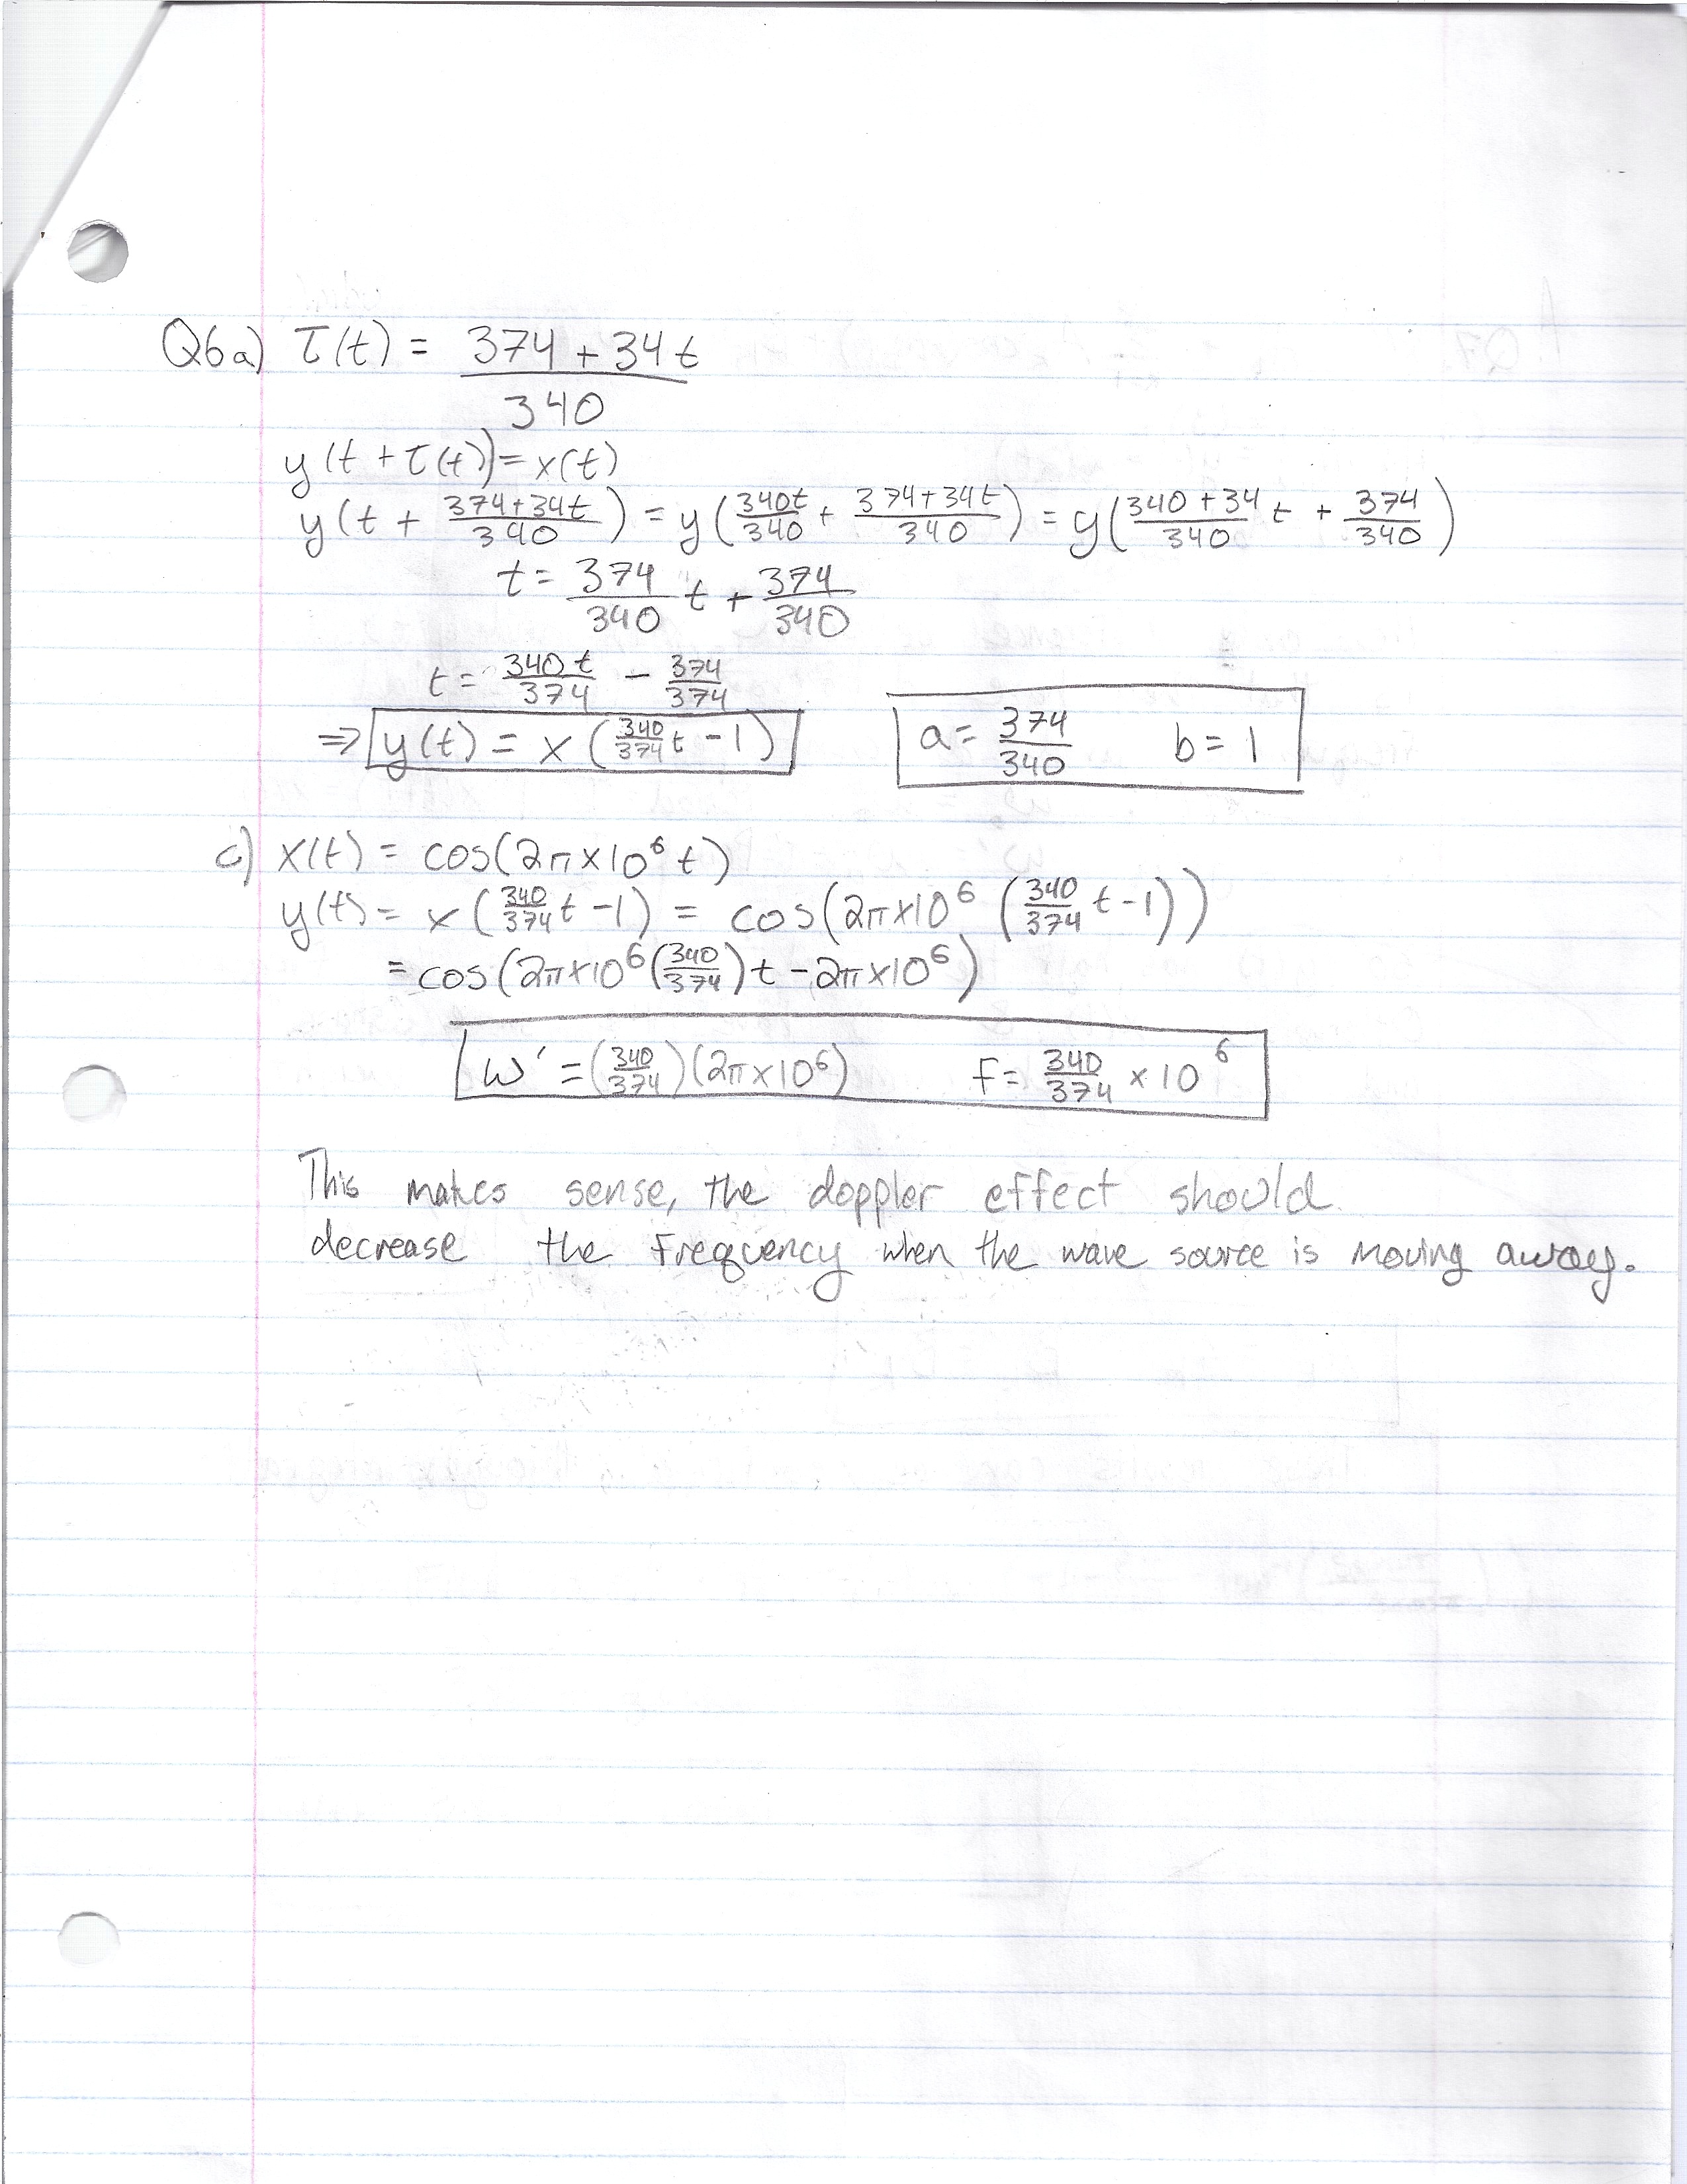 Q6a) τ(t) = (374 + 34t)/340
y(t + τ(t)) = x(t)
y(t + (374+34t)/340) = y(340t/340 + (374+34t)/340) = y((340+34)/340 t + 374/340)
t = 374/340 t + 374/340
t = 340t/374 - 374/374
⇒ y(t) = x(340/374 t - 1) a = 374/340 b = 1
c) x(t) = cos(2π×10⁶ t)
y(t) = x(340/374 t - 1) = cos(2π×10⁶ (340/374 t - 1))
= cos(2π×10⁶(340/374)t - 2π×10⁶)
ω' = (340/374)(2π×10⁶) F = 340/374 × 10⁶
This makes sense, the doppler effect should
decrease the frequency when the wave source is moving away.